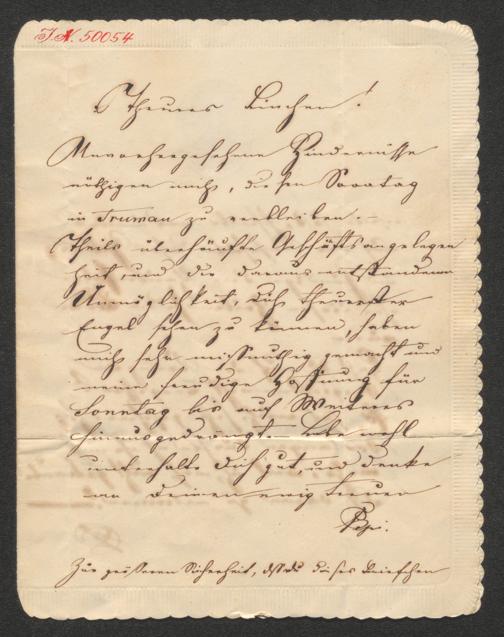 I.N. 50054
Theures Linchen!
Unvorhergesehene Hindernisse
nöthigen mich, diesen Sonntag
in Truman zu verbleiben. –
Theils überhäufte Geschäftsangelegen
heit und die daraus entstandene
Unmöglichkeit, dich theuerster
Engel sehen zu können, haben
mich sehr missmuthig gemacht und
meine freudige Hoffnung für
Sonntag bis auf Weiteres
hinausgedrängt. Lebe wohl
unterhalte dich gut, und denke
an Deinen ewig treuen
Zur größeren Sicherheit, daß du dieses Briefchen